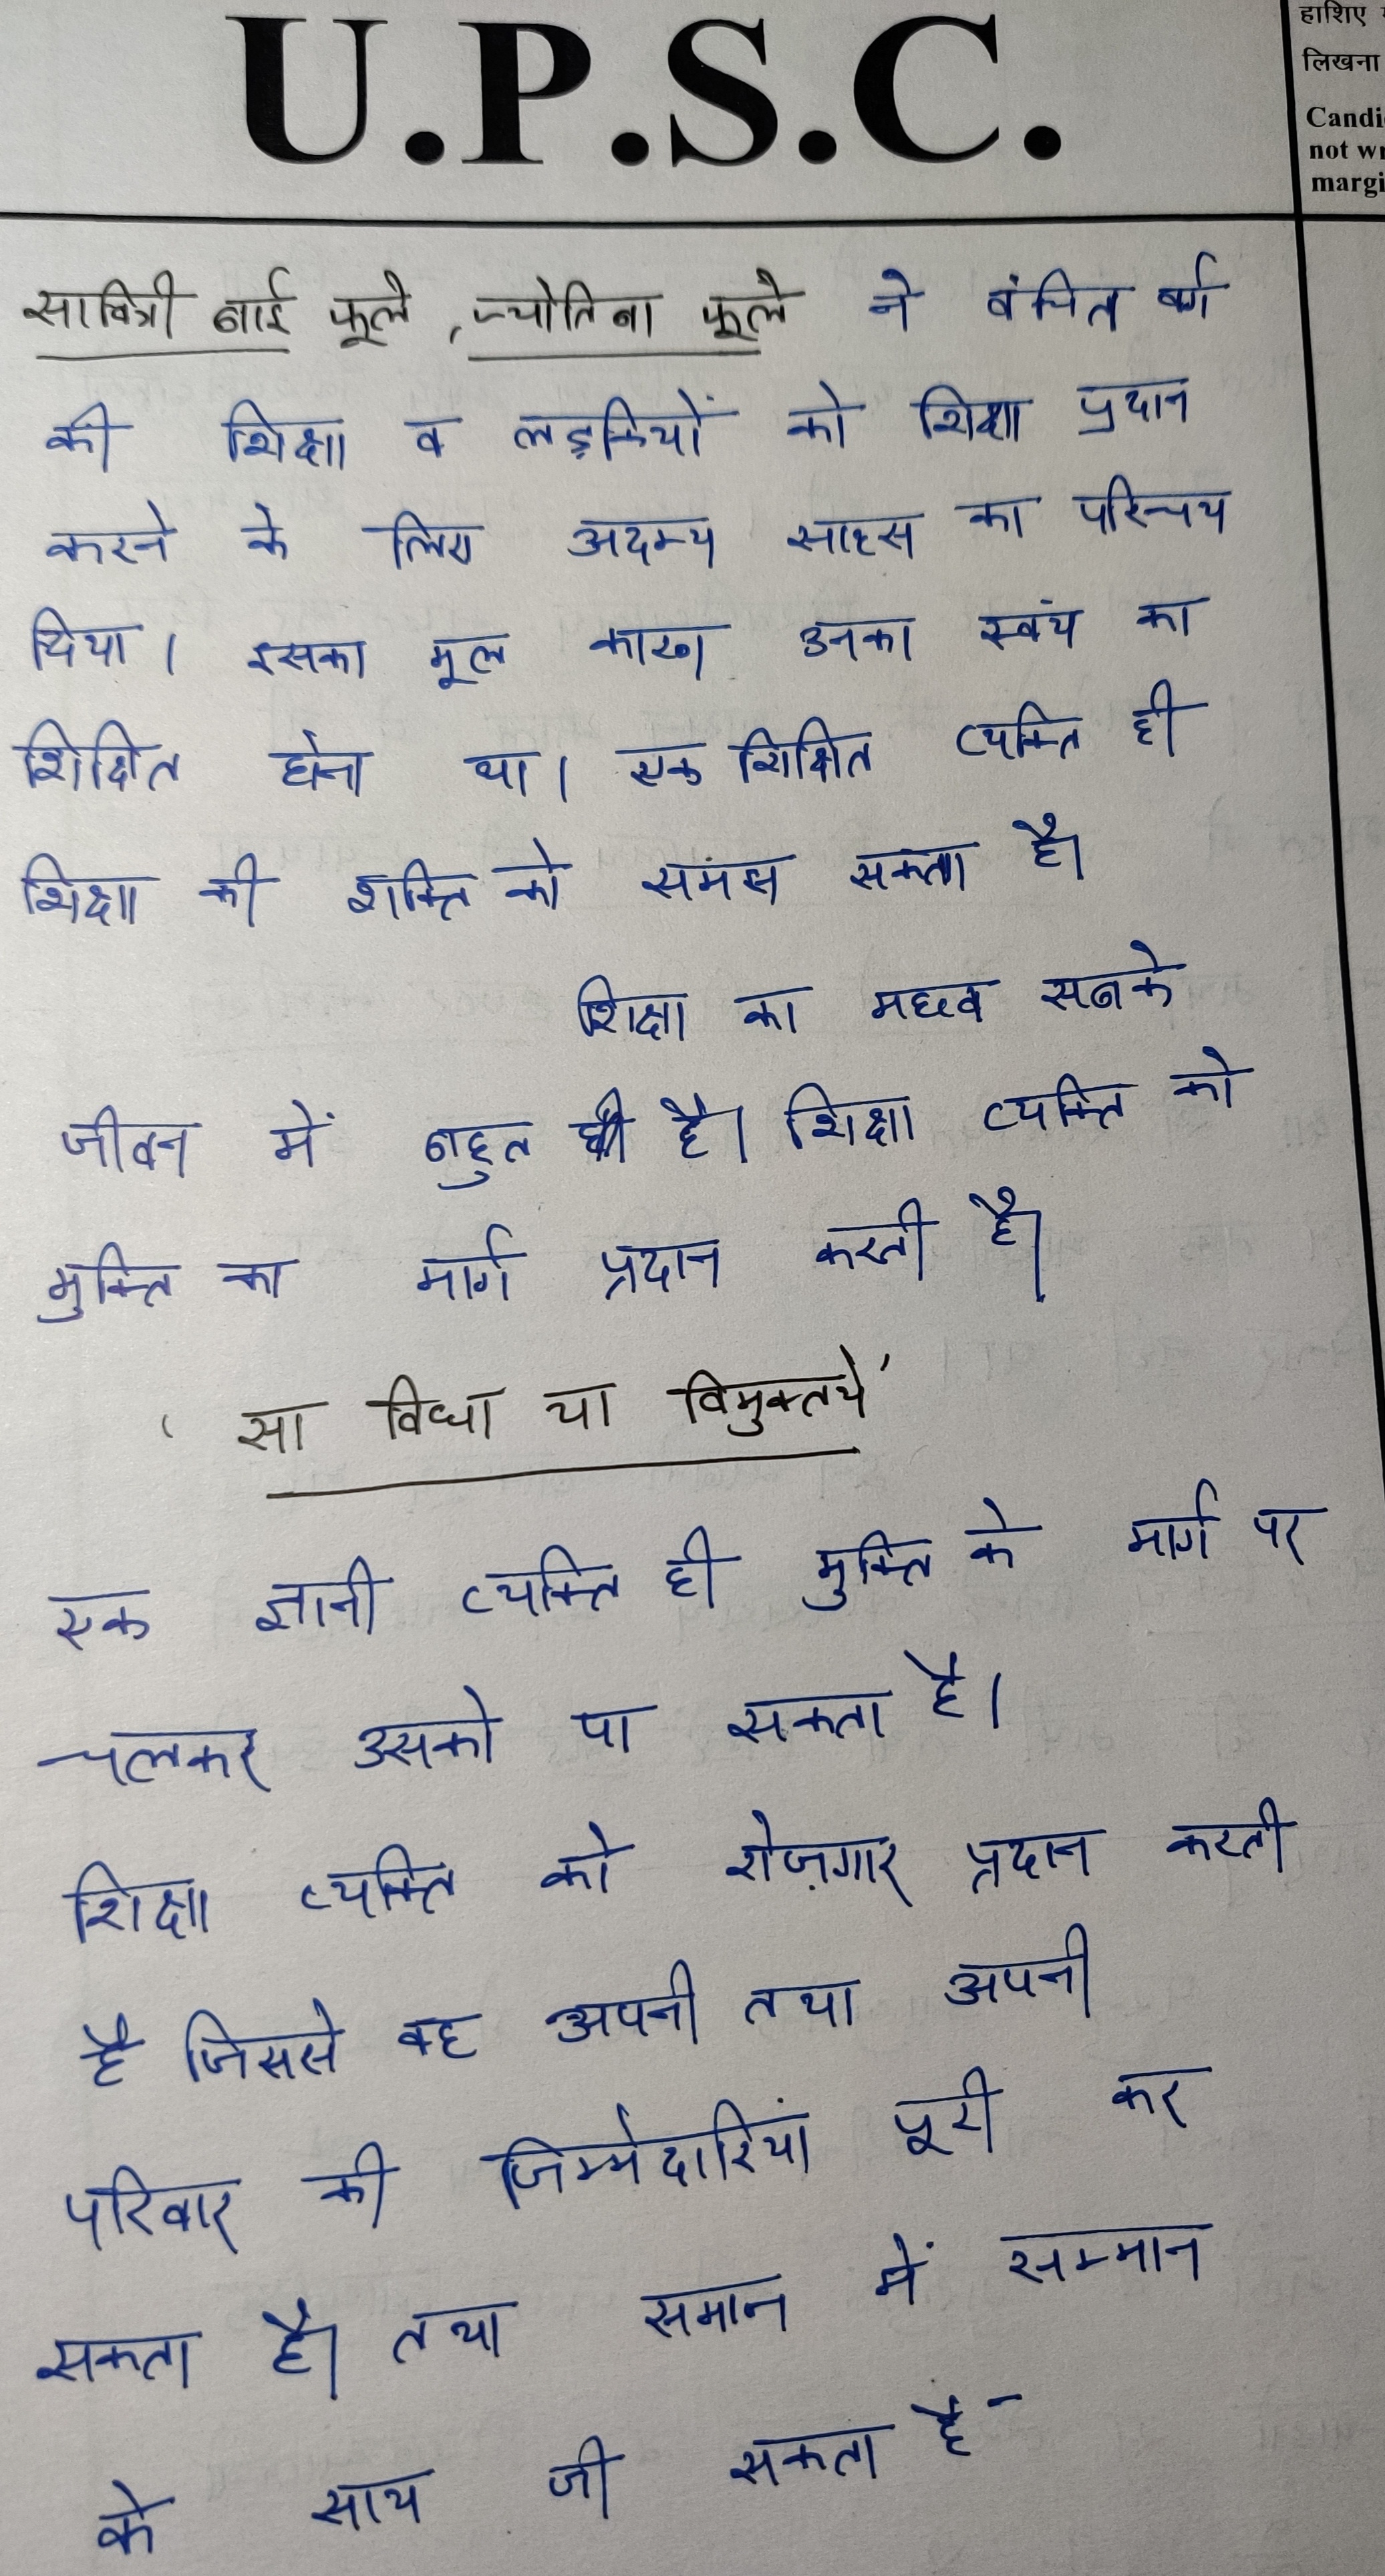 U.P.S.C.
हाशिए
लिखना
Candi
not wr
margi
सावित्री बाई फूले, ज्योतिबा फूले ने वंचित वर्ग
की शिक्षा व लड़कियों को शिक्षा प्रदान
करने के लिए अदम्य साहस का परिचय
दिया। इसका मूल कारण उनका स्वंय का
शिक्षित होना था। एक शिक्षित व्यक्ति ही
शिक्षा की शक्ति को समझ सकता है।
शिक्षा का महत्व सबके
जीवन में बहुत ही है। शिक्षा व्यक्ति को
मुक्ति का मार्ग प्रदान करती है।
' सा विधा या विमुक्तये'
एक ज्ञानी व्यक्ति ही मुक्ति के मार्ग पर
चलकर उसको पा सकता है।
शिक्षा व्यक्ति को रोज़गार प्रदान करती
है जिससे वह अपनी तथा अपनी
परिवार की जिम्मेदारियां पूरी कर
सकता है। तथा समाज में सम्मान
के साथ जी सकता है -